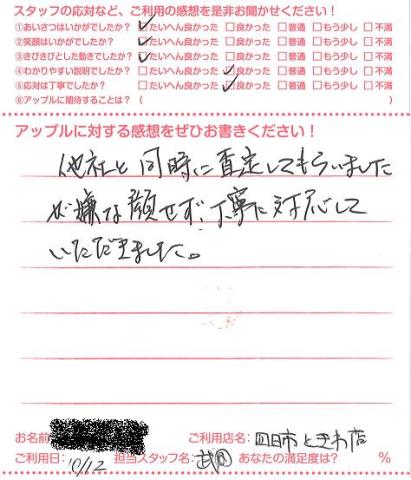 スタッフの応対など、ご利用の感想を是非お聞かせください!
①あいさつはいかがでしたか? ☑たいへん良かった □良かった □普通 □もう少し □不満
②笑顔はいかがでしたか? ☑たいへん良かった □良かった □普通 □もう少し □不満
③きびきびとした動きでしたか? ☑たいへん良かった □良かった □普通 □もう少し □不満
④わかりやすい説明でしたか? □たいへん良かった ☑良かった □普通 □もう少し □不満
⑤応対は丁寧でしたか? □たいへん良かった ☑良かった □普通 □もう少し □不満
⑥アップルに期待することは? ( )
アップルに対する感想をぜひお書きください!
他社と同時に査定してもらいました
が嫌な顔せず、丁寧に対応して
いただきました。
お名前 ご利用店名: 四日市ときわ店
ご利用日: 10/12 担当スタッフ名: 武田 あなたの満足度は? %